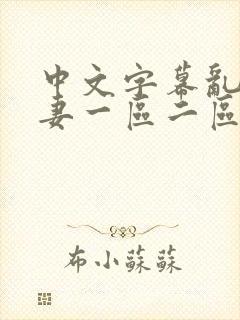 中文字幕亂
妻一區二區
布小蘇蘇